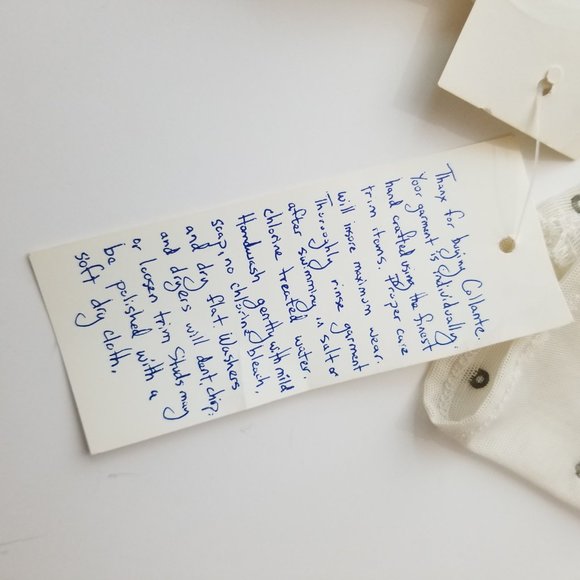 Thanx for buying Collante.
Your garment is individually
hand crafted using the finest
trim items. Proper care
will insure maximum wear.
Thoroughly rinse garment
after swimming in salt or
chlorine treated water.
Handwash gently with mild
soap, no chlorine bleach,
and dry flat. Washers
and dryers will dent, chip,
or loosen trim. Studs may
be polished with a
soft dry cloth.